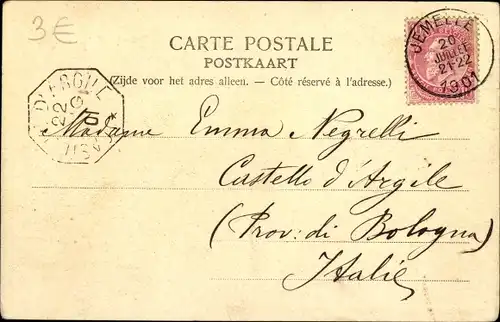 3€
CARTE POSTALE
POSTKAART
(Zijde voor het adres alleen. — Côté réservé à l'adresse.)
JEMELLE
20
JUILLET
21-22
1901
D'ARGILE
22
Madame Emma Negrelli
Castello d'Argile
(Prov: di Bologna)
Italie